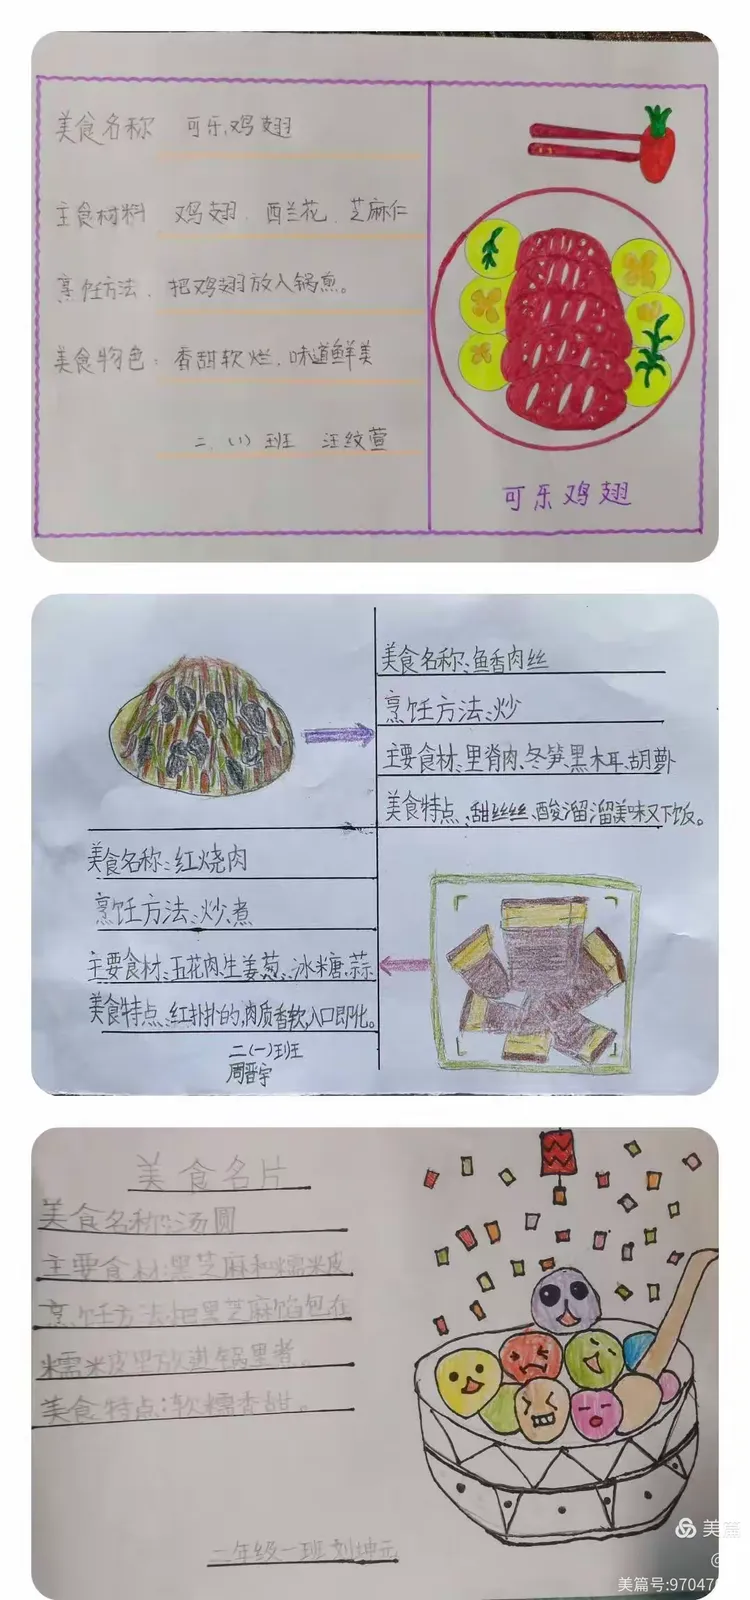 美食名称 可乐鸡翅
主食材料 鸡翅、西兰花、芝麻仁
烹饪方法、把鸡翅放入锅煎。
美食物色：香甜软烂、味道鲜美
二、(1) 班 汪纹萱
可乐鸡翅
美食名称：鱼香肉丝
烹饪方法：炒
主要食材：里脊肉、冬笋、黑木耳、胡萝卜
美食特点、甜丝丝、酸溜溜美味又下饭。
美食名称：红烧肉
烹饪方法：炒、煮
主要食材：五花肉、生姜、葱、冰糖、蒜
美食特点、红扑扑的，肉质香软，入口即化。
二(一)班
周晋宇
美食名片
美食名称：汤圆
主要食材：黑芝麻和糯米皮
烹饪方法：把黑芝麻馅包在
糯米皮里放进锅里煮。
美食特点：软糯香甜。
二年级一班刘坤元
美篇
@
美篇号:97047